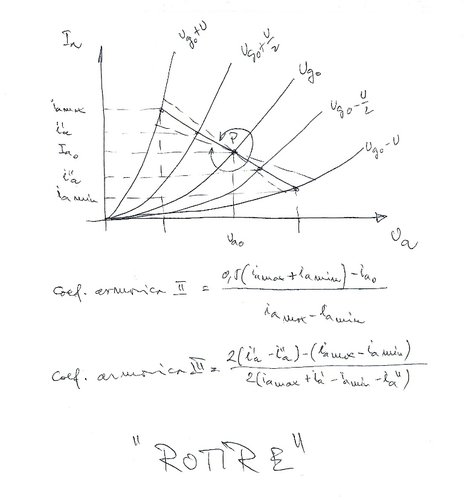 Iₐ
U_g₀+U
U_g₀+U/2
U_g₀
U_g₀-U/2
U_g₀-U
i_a max
i'_a
I_a₀
i''_a
i_a min
P
U_a₀
U_a
Coef. armonica II = (0,5(i_a max + i_a min) - i_a₀) / (i_a max - i_a min)
Coef. armonica III = (2(i'_a - i''_a) - (i_a max - i_a min)) / (2(i_a max + i'_a - i_a min - i''_a))
"ROTIRE"